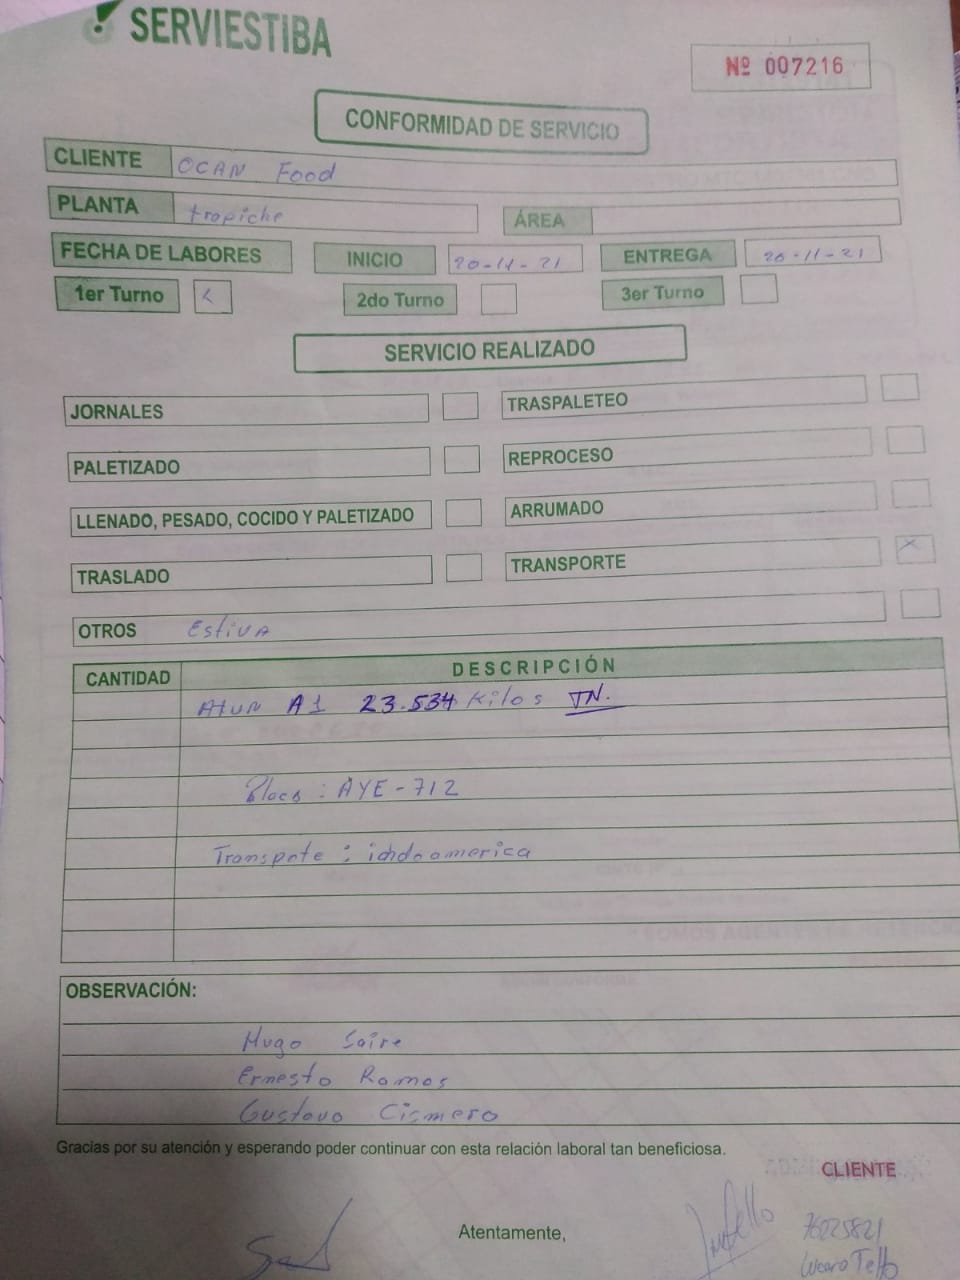 SERVIESTIBA
Nº 007216
CONFORMIDAD DE SERVICIO
CLIENTE OCAN Food
PLANTA tropiche ÁREA
FECHA DE LABORES INICIO 20-11-21 ENTREGA 20-11-21
1er Turno x 2do Turno 3er Turno
SERVICIO REALIZADO
JORNALES TRASPALETEO
PALETIZADO REPROCESO
LLENADO, PESADO, COCIDO Y PALETIZADO ARRUMADO
TRASLADO TRANSPORTE x
OTROS Estiva
CANTIDAD DESCRIPCIÓN
Atun A1 23.534 Kilos TN.
Placa : AYE-712
Transpote :
OBSERVACIÓN:
Hugo Saire
Ernesto Ramos
Gustavo Cismero
Gracias por su atención y esperando poder continuar con esta relación laboral tan beneficiosa.
CLIENTE
Atentamente,
76225821
Lucero Tello